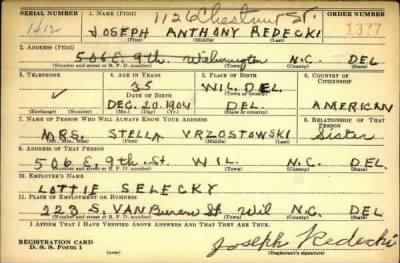 1126 Chestnut St.
SERIAL NUMBER 1. NAME (Print) ORDER NUMBER
1212 JOSEPH ANTHONY REDECKI 1377
(First) (Middle) (Last)
2. ADDRESS (Print)
506 E. 9th. Wilmington N.C. DEL
(Number and street or R. F. D. number) (Town) (County) (State)
3. TELEPHONE 4. AGE IN YEARS 5. PLACE OF BIRTH 6. COUNTRY OF CITIZENSHIP
✓ 35 WIL. DEL
DATE OF BIRTH (Town or county)
DEC. 20. 1904 DEL. AMERICAN
(Exchange) (Number) (Mo.) (Day) (Yr.) (State or country)
7. NAME OF PERSON WHO WILL ALWAYS KNOW YOUR ADDRESS 8. RELATIONSHIP OF THAT PERSON
MRS. STELLA VRZOSTOWSKI Sister
(Mr., Mrs., Miss) (First) (Middle) (Last)
9. ADDRESS OF THAT PERSON
506 E. 9th. St. WIL. N.C. DEL.
(Number and street or R. F. D. number) (Town) (County) (State)
10. EMPLOYER'S NAME
LOTTIE SELECKY
11. PLACE OF EMPLOYMENT OR BUSINESS
223 S. VAN Buren St. Wil N.C. DEL
(Number and street or R. F. D. number) (Town) (County) (State)
I AFFIRM THAT I HAVE VERIFIED ABOVE ANSWERS AND THAT THEY ARE TRUE.
REGISTRATION CARD
D. S. S. Form 1
Joseph Redecki
(Registrant's signature)